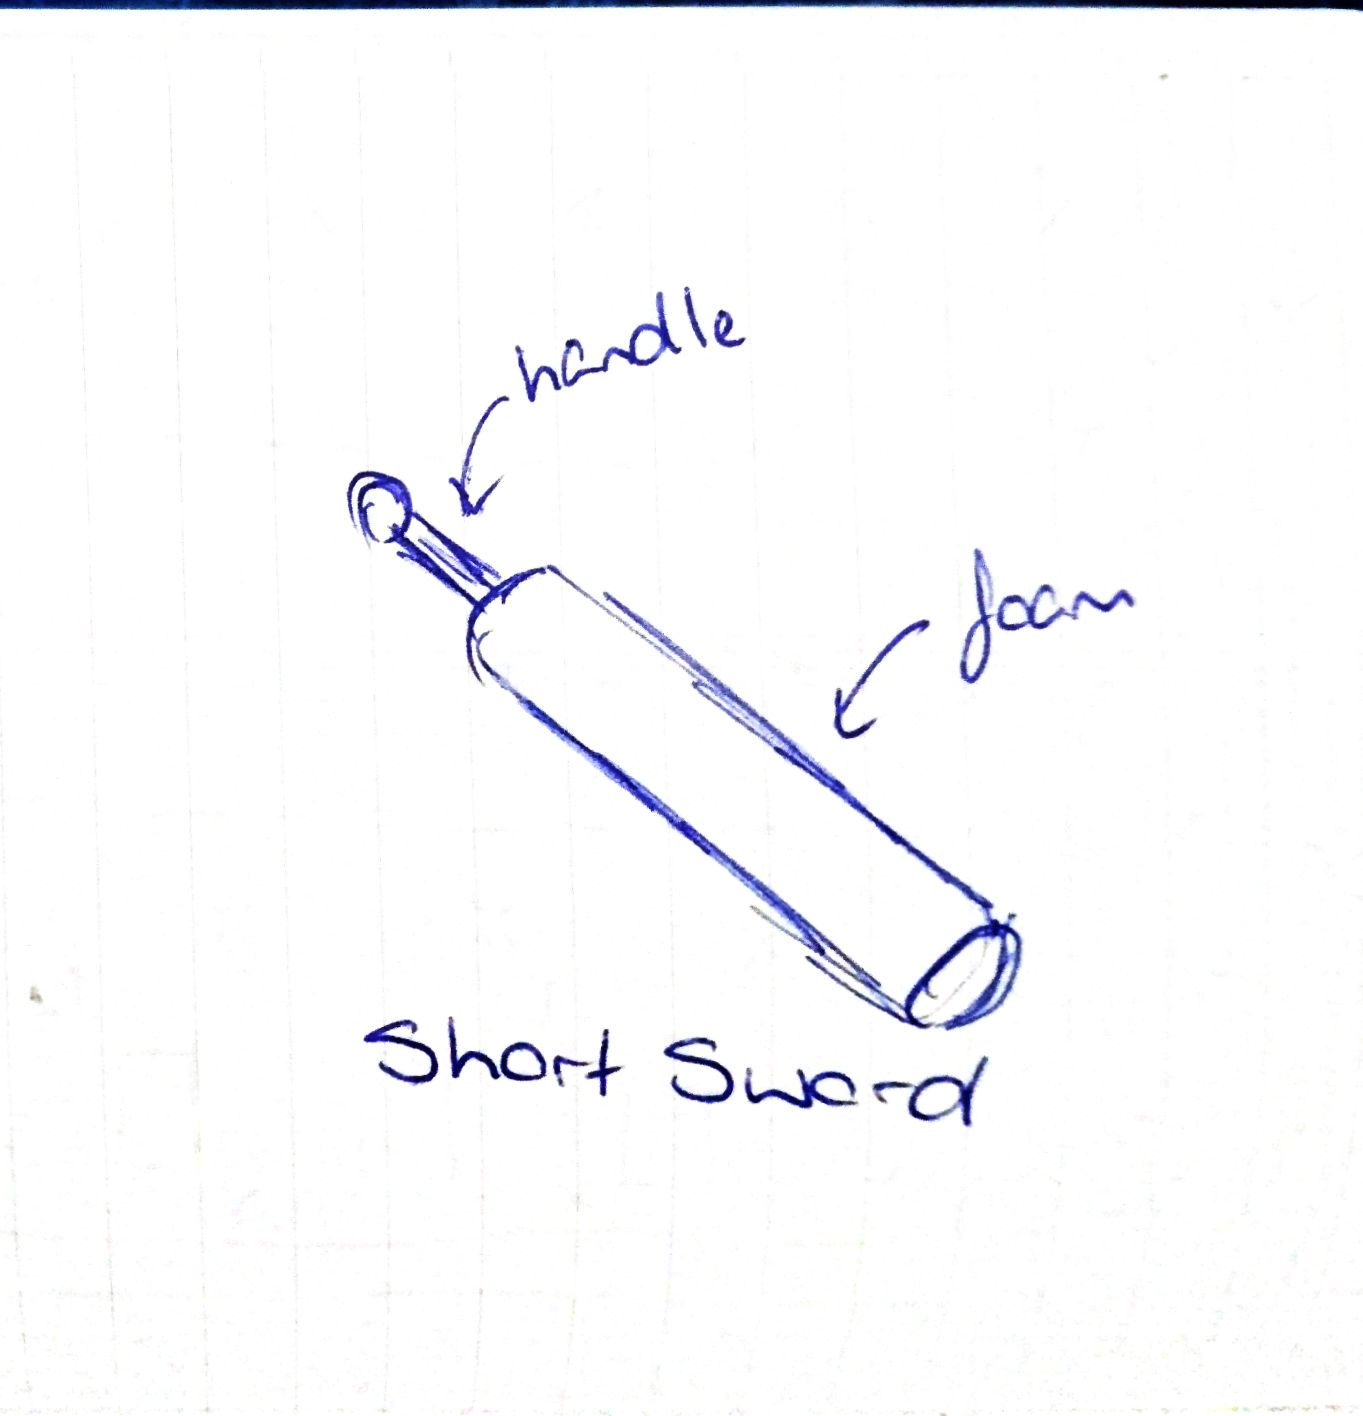 handle
foam
Short Sword